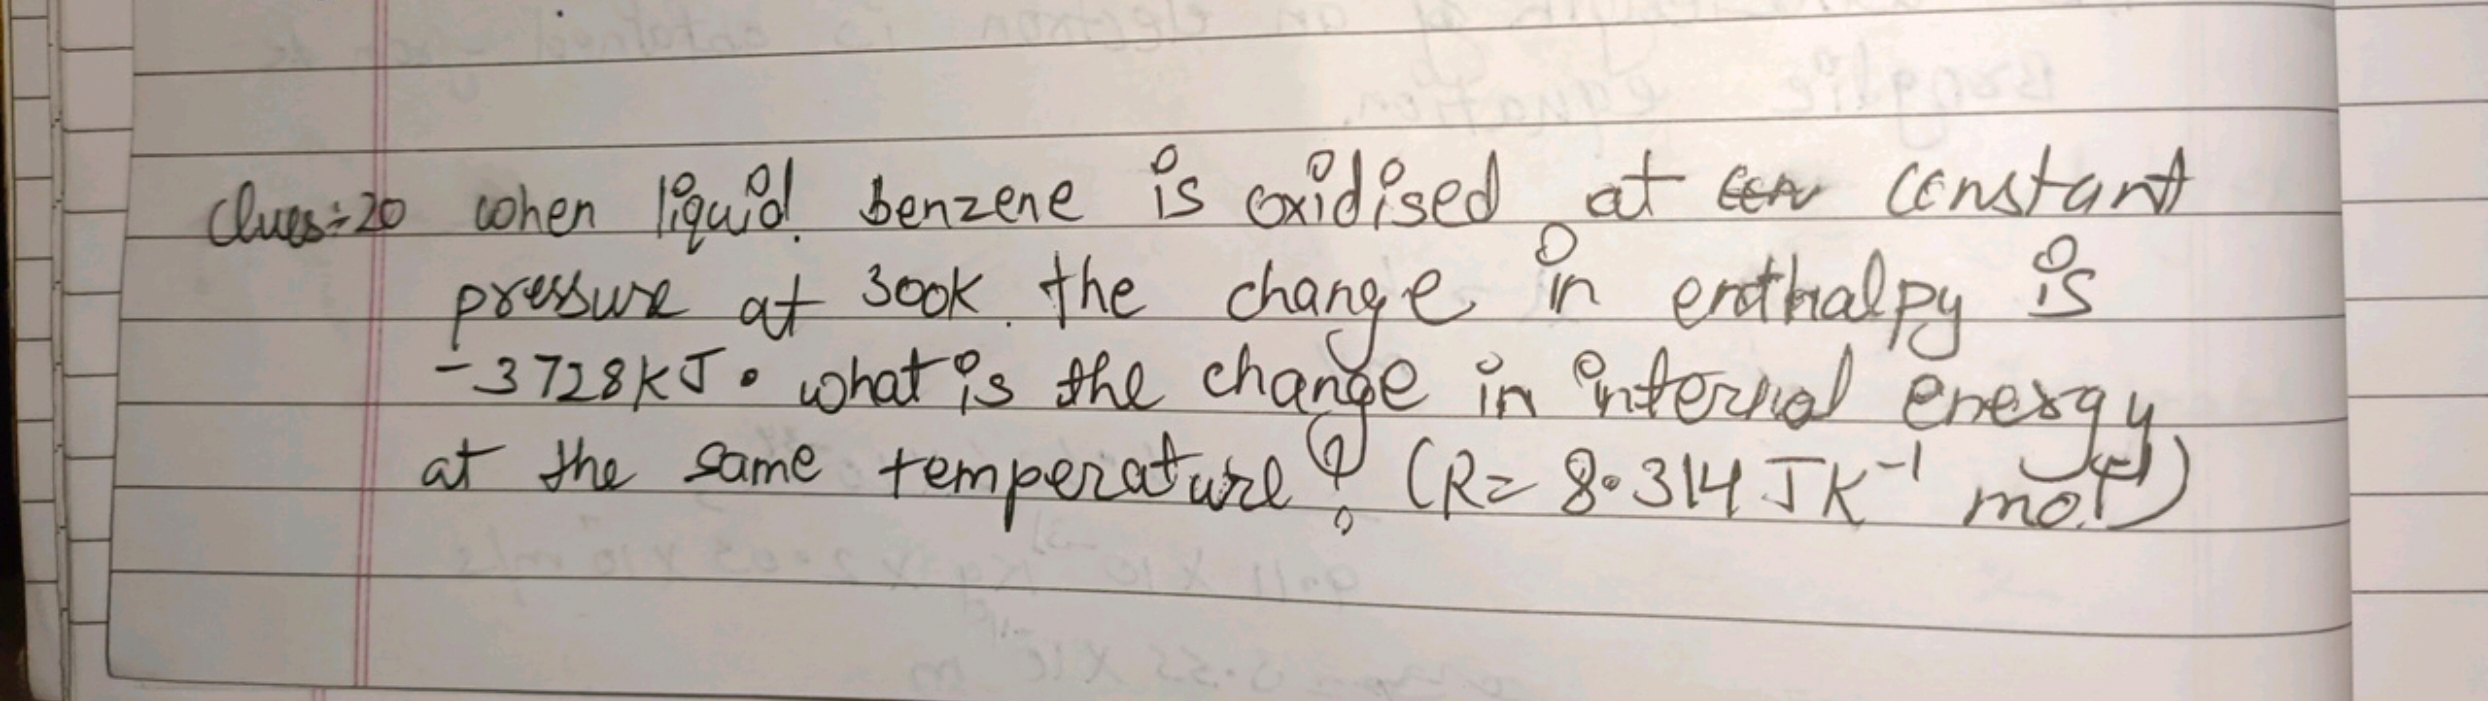 Ques:- 20 when liquid benzene is oxidised at constant
pressure at 300K the change in enthalpy is
-3728KJ. what is the change in internal energy
at the same temperature? (R= 8.314 JK⁻¹ mol⁻¹)